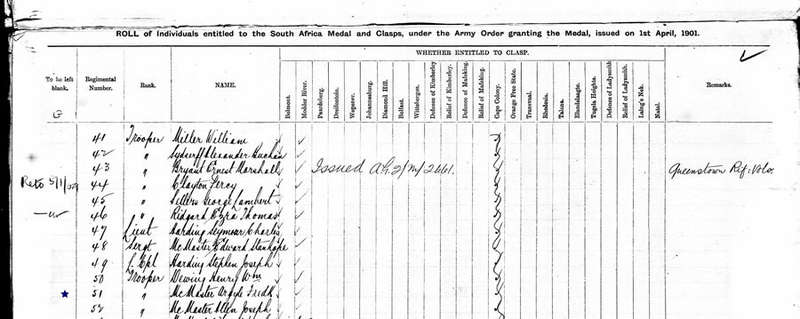 ROLL of Individuals entitled to the South Africa Medal and Clasps, under the Army Order granting the Medal, issued on 1st April, 1901.
WHETHER ENTITLED TO CLASP.
To be left blank. Regimental Number. Rank. NAME. Belmont. Modder River. Paardeberg. Driefontein. Wepener. Johannesburg. Diamond Hill. Belfast. Wittebergen. Defence of Kimberley. Relief of Kimberley. Defence of Mafeking. Relief of Mafeking. Cape Colony. Orange Free State. Transvaal. Rhodesia. Talana. Elandslaagte. Tugela Heights. Defence of Ladysmith. Relief of Ladysmith. Laing's Nek. Natal. Remarks.
41 Trooper Miller William
42 " Alexander
43 " Bryant Ernest Marshall Issued A.G.2/M/2661. Queenstown Rif: Vols.
44 " Clayton Percy
45 " Sellers George Lambert
46 " Ridgard Ezra Thomas
47 Lieut Harding Seymour Charles
48 Sergt McMaster Edward Stanhope
49 L. Cpl Harding Stephen Joseph
50 Trooper Dewing Henry Wm
51 " McMaster Argyle Fredk
52 " McMaster Allen Joseph